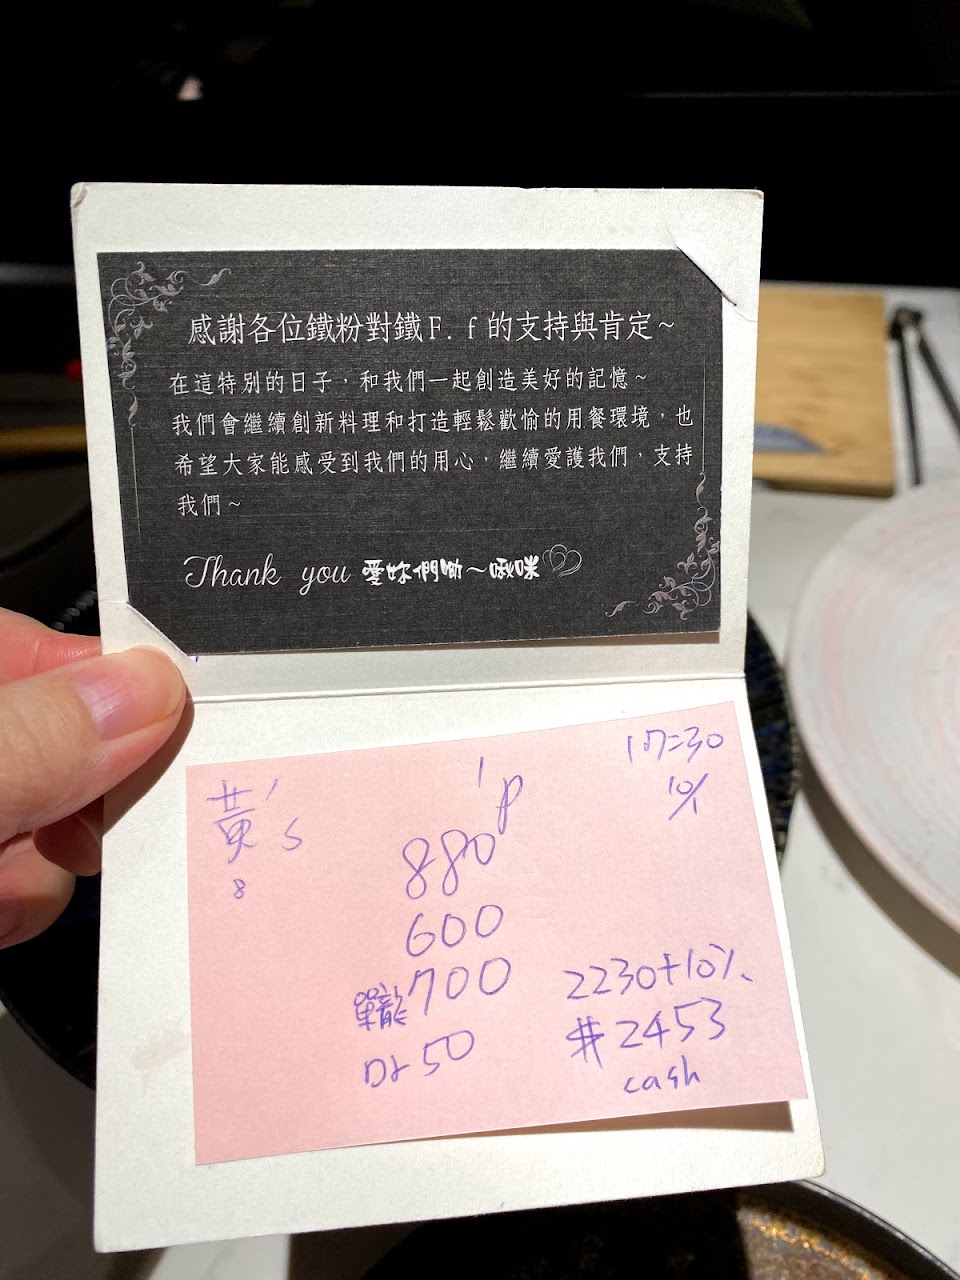 感謝各位鐵粉對鐵F.f的支持與肯定~
在這特別的日子，和我們一起創造美好的記憶~
我們會繼續創新料理和打造輕鬆歡愉的用餐環境，也
希望大家能感受到我們的用心，繼續愛護我們，支持
我們~
Thank you 愛妳們呦~啾咪
黃's
8
1p
17=30
10/1
880
600
單龍700
Dr 50
2230+10%
#2453
cash